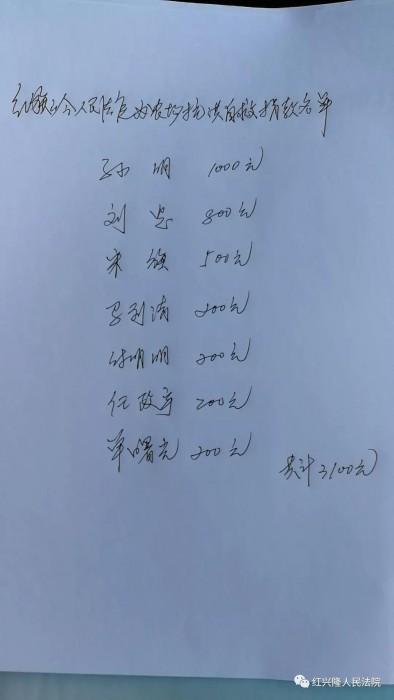 人民法庭为农场抗洪自救捐款名单
孙明 1000元
刘忠 800元
宋 500元
马利清 200元
明明 200元
任政宇 200元
单曙光 200元
共计3100元
红兴隆人民法院